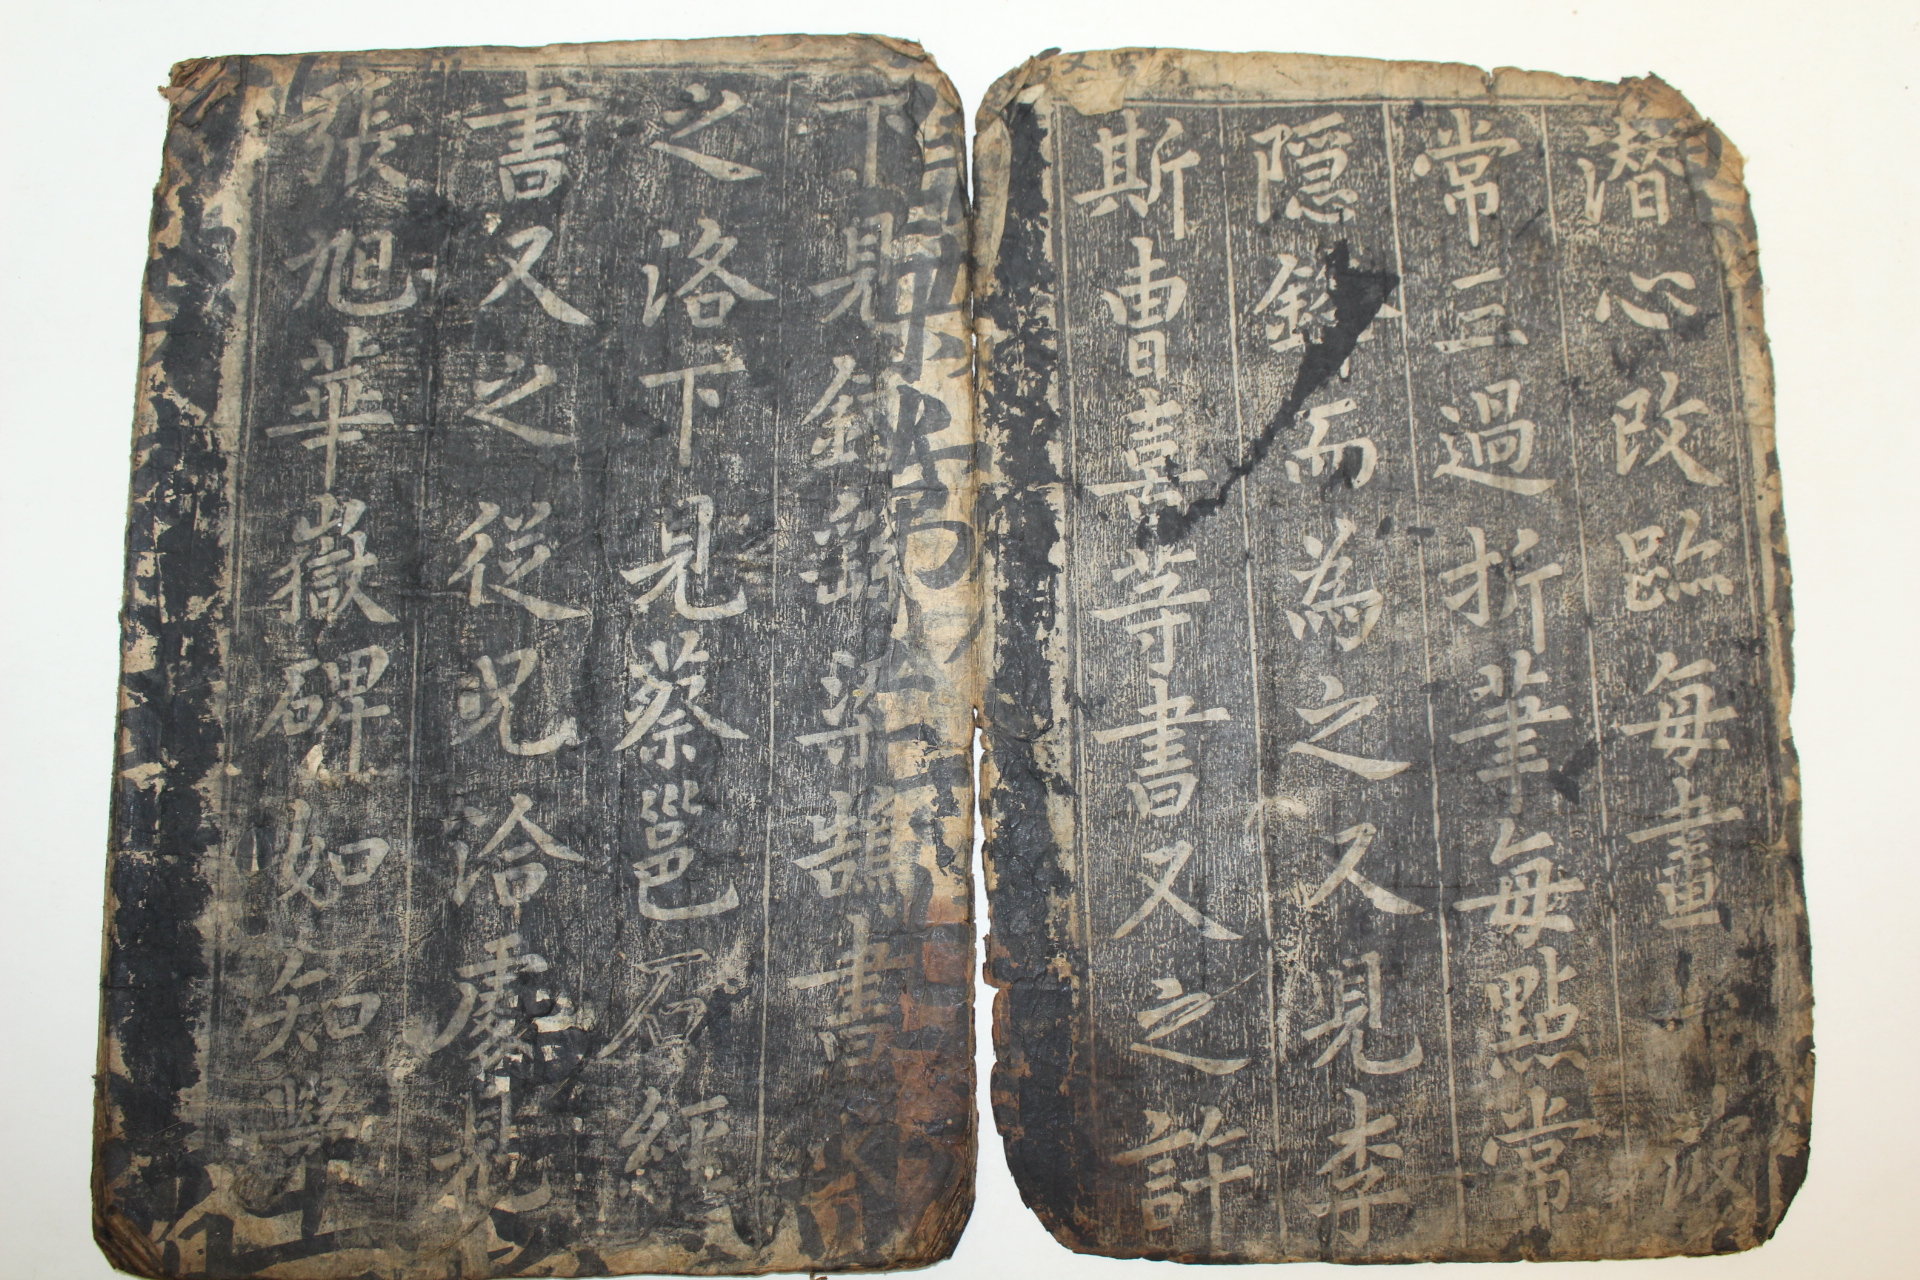 潜心改跡每畫波
常三過折筆每點常
隠鋒而為之又見李
斯曹喜等書又之許
下見鍾繇梁鵠書
之洛下見蔡邕石經
書又之從兄洽處見
張旭華嶽碑如知學